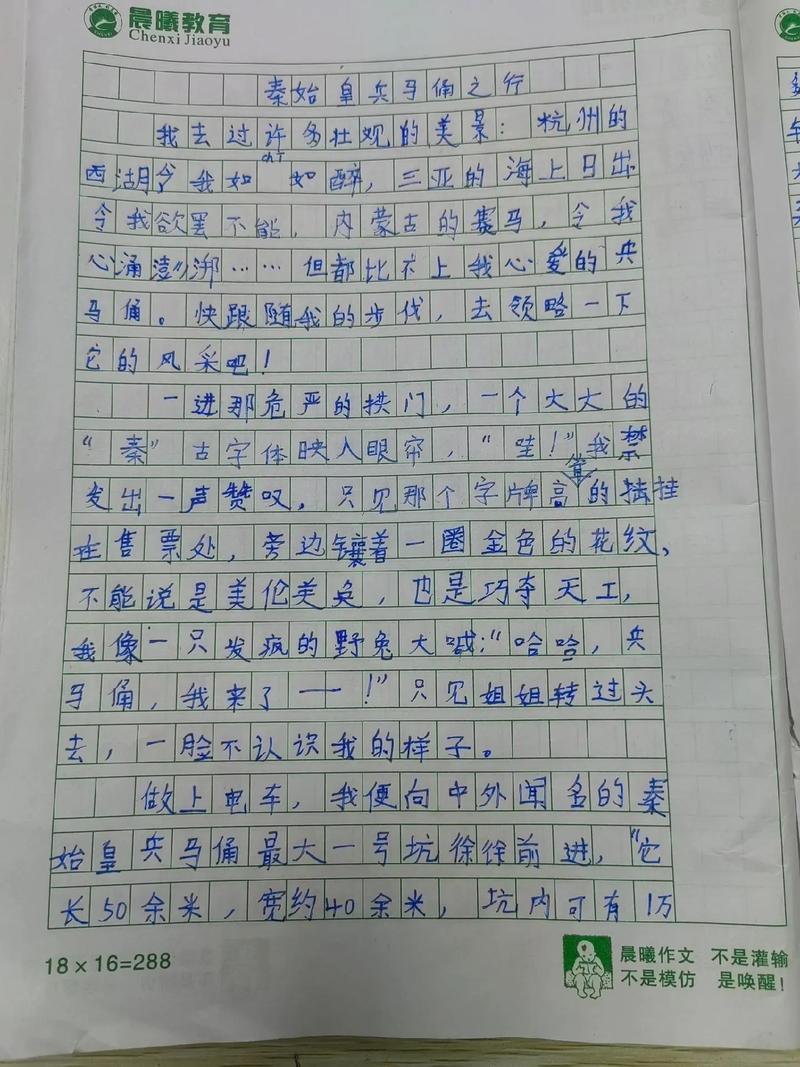 晨曦教育
Chenxi Jiaoyu
秦始皇兵马俑之行
我去过许多壮观的美景：杭州的
西湖令我如 如醉，三亚的海上日出
令我欲罢不能，内蒙古的赛马，令我
心涌澎湃……但都比不上我心爱的兵
马俑。快跟随我的步伐，去领略一下
它的风采吧！
一进那危严的拱门，一个大大的
“秦”古字体映入眼帘，“哇！”我禁
发出一声赞叹，只见那个字牌高高的挂
在售票处，旁边镶着一圈金色的花纹，
不能说是美伦美奂，也是巧夺天工，
我像一只发疯的野兔大喊：“哈哈，兵
马俑，我来了——！”只见姐姐转过头
去，一脸不认识我的样子。
做上电车，我便向中外闻名的秦
始皇兵马俑最大一号坑徐徐前进，“它
长50余米，宽约40余米，坑内可有1万
18×16=288
晨曦作文 不是灌输
不是模仿 是唤醒！